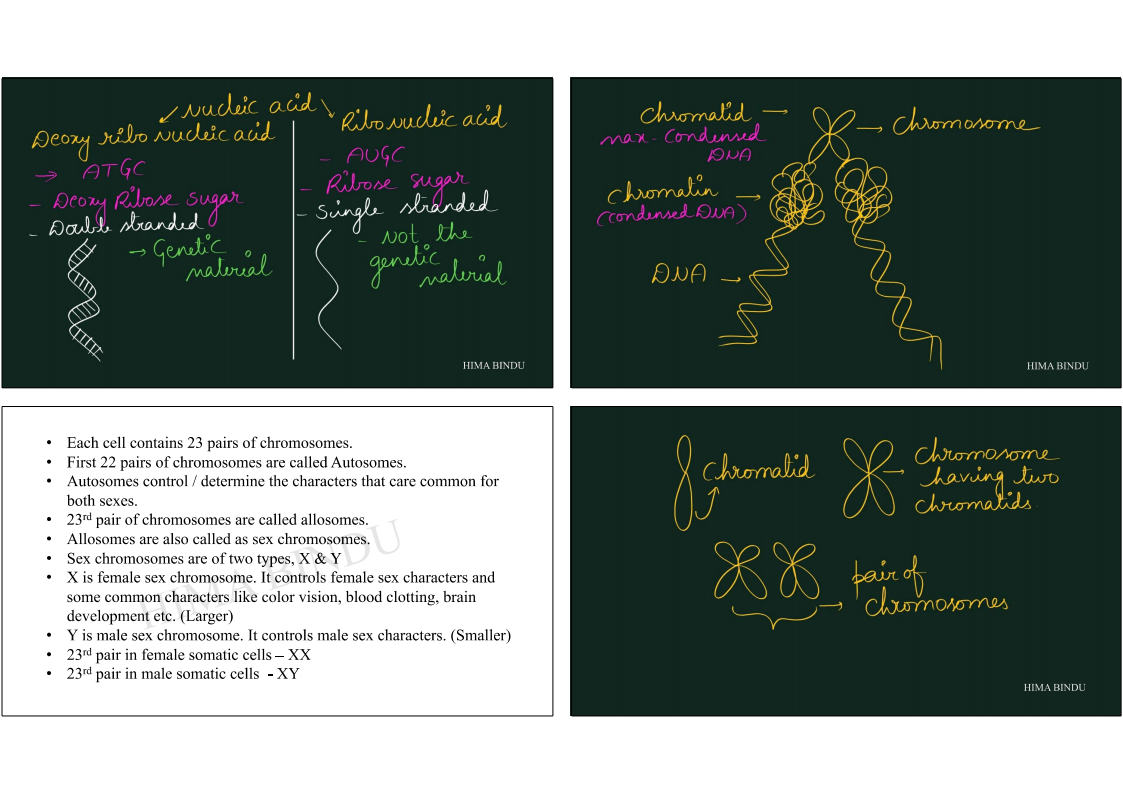 Nucleic acid
Deoxy ribo nucleic acid
→ ATGC
- Deoxy Ribose sugar
- Double stranded
→ Genetic
material
Ribo nucleic acid
- AUGC
- Ribose sugar
- Single stranded
- Not the
genetic
material
HIMA BINDU
Chromatid →
max-Condensed
DNA
→ Chromosome
Chromatin →
(condensed DNA)
DNA →
HIMA BINDU
• Each cell contains 23 pairs of chromosomes.
• First 22 pairs of chromosomes are called Autosomes.
• Autosomes control / determine the characters that care common for
both sexes.
• 23rd pair of chromosomes are called allosomes.
• Allosomes are also called as sex chromosomes.
• Sex chromosomes are of two types, X & Y
• X is female sex chromosome. It controls female sex characters and
some common characters like color vision, blood clotting, brain
development etc. (Larger)
• Y is male sex chromosome. It controls male sex characters. (Smaller)
• 23rd pair in female somatic cells – XX
• 23rd pair in male somatic cells - XY
HIMA BINDU
Chromatid
→ Chromosome
having two
chromatids.
→ pair of
chromosomes
HIMA BINDU